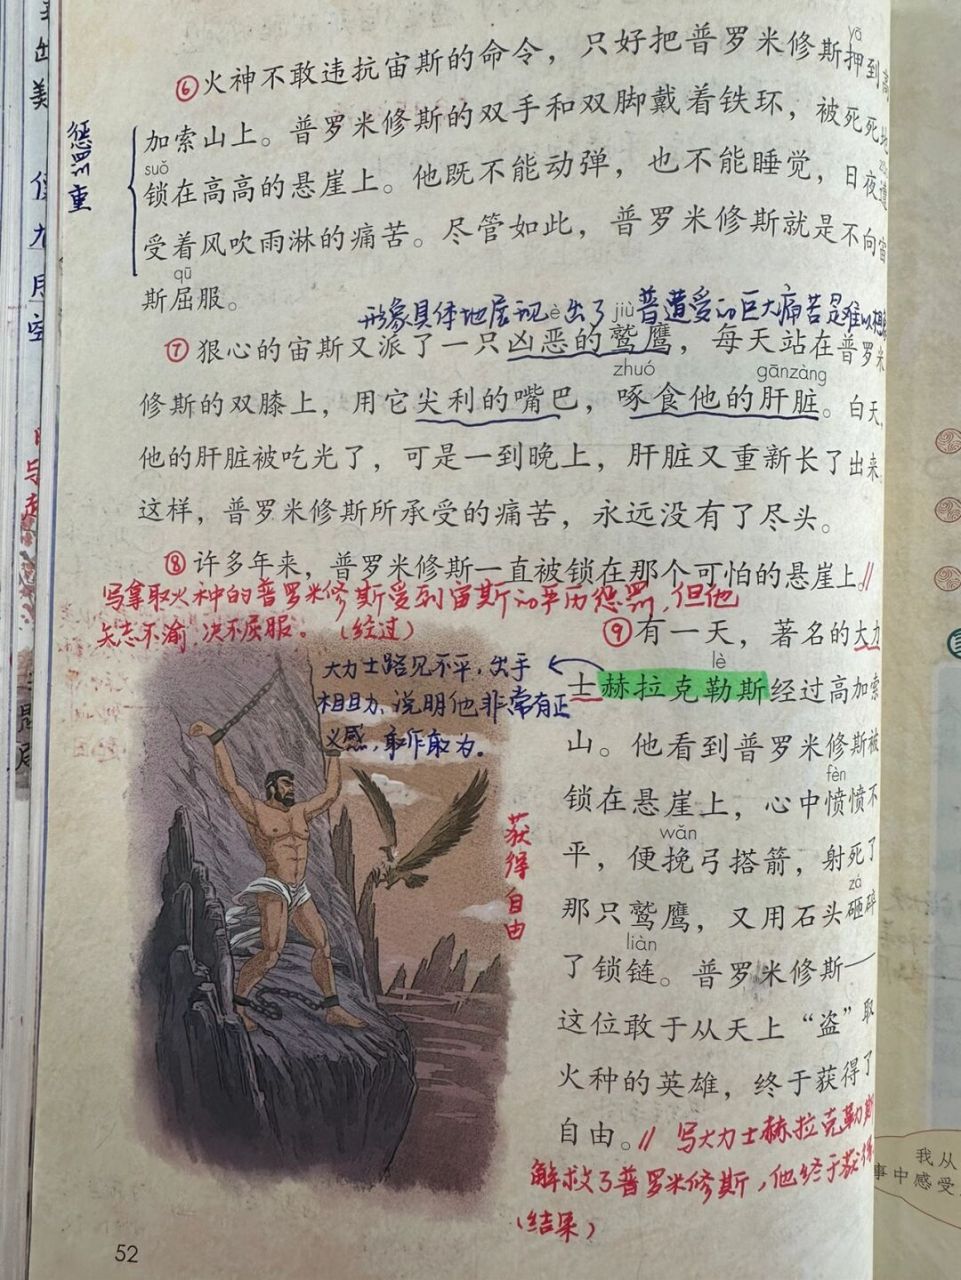 ⑥火神不敢违抗宙斯的命令，只好把普罗米修斯押到高
yā
加索山上。普罗米修斯的双手和双脚戴着铁环，被死死地
惩罚重
suǒ
锁在高高的悬崖上。他既不能动弹，也不能睡觉，日夜遭
受着风吹雨淋的痛苦。尽管如此，普罗米修斯就是不向宙
qū
斯屈服。
形象具体地展现出了普遭受的巨大痛苦是难以想
è
jiù
⑦狠心的宙斯又派了一只凶恶的鹫鹰，每天站在普罗米
zhuó
gānzàng
修斯的双膝上，用它尖利的嘴巴，啄食他的肝脏。白天，
他的肝脏被吃光了，可是一到晚上，肝脏又重新长了出来。
这样，普罗米修斯所承受的痛苦，永远没有了尽头。
⑧许多年来，普罗米修斯一直被锁在那个可怕的悬崖上。//
写拿取火种的普罗米修斯受到宙斯的严厉惩罚，但他
矢志不渝，决不屈服。（经过）
⑨有一天，著名的大力
lè
士赫拉克勒斯经过高加索
大力士路见不平，出手
相助，说明他非常有正
义感，敢作敢为。
山。他看到普罗米修斯被
fèn
锁在悬崖上，心中愤愤不
wǎn
平，便挽弓搭箭，射死了
zá
那只鹫鹰，又用石头砸碎
liàn
了锁链。普罗米修斯——
这位敢于从天上“盗”取
火种的英雄，终于获得了
自由。//
获得自由
写大力士赫拉克勒斯
解救了普罗米修斯，他终于获得
（结果）
52
我从
事中感受